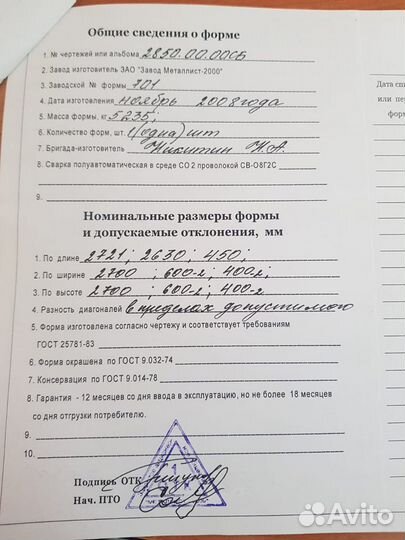 Общие сведения о форме
1. № чертежей или альбома 2850.00.00СБ
2. Завод изготовитель ЗАО "Завод Металлист-2000"
3. Заводской № формы 701
4. Дата изготовления ноябрь 2008 года
5. Масса формы, кг 5235;
6. Количество форм, шт. 1 (одна) шт
7. Бригада-изготовитель Никитин Н.А.
8. Сварка полуавтоматическая в среде СО 2 проволокой СВ-О8Г2С
9.
Номинальные размеры формы
и допускаемые отклонения, мм
1. По длине 2721; 2630; 450;
2. По ширине 2700 ; 600-2; 400-2;
3. По высоте 2700 ; 600-2; 400-2
4. Разность диагоналей в пределах допустимого
5. Форма изготовлена согласно чертежу и соответствует требованиям
ГОСТ 25781-83
6. Форма окрашена по ГОСТ 9.032-74
7. Консервация по ГОСТ 9.014-78
8. Гарантия - 12 месяцев со дня ввода в эксплуатацию, но не более 18 месяцев
со дня отгрузки потребителю.
9.
10.
Подпись ОТК
Нач. ПТО
1
Дата сп
или пе
фор
Avito